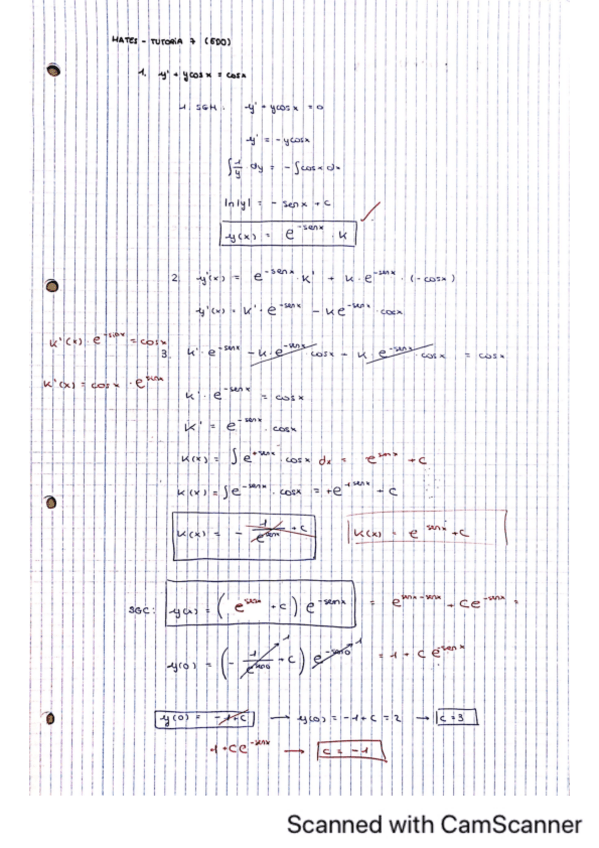 MATES - TUTORÍA 7 (EDO)
1. y' + ycosx = cosx
1. SGH: y' + ycosx = 0
y' = -ycosx
∫ 1/y dy = -∫cosx dx
ln|y| = -senx + c
y(x) = e^-senx · K
2. y'(x) = e^-senx · K' + K · e^-senx · (-cosx)
y'(x) = K' · e^-senx - Ke^-senx · cosx
K'(x) · e^-sinx = cosx
3. K' · e^-senx - K · e^-senx cosx + K · e^-senx cosx = cosx
K'(x) = cosx · e^senx
K' · e^-senx = cosx
K' = e^-senx · cosx
K(x) = ∫e^+senx · cosx dx = e^senx + C
K(x) = ∫e^-senx · cosx = +e^+senx + C
K(x) = - 1/e^senx + C
K(x) = e^senx + C
SGC: y(x) = (e^senx + C) e^-senx = e^senx-senx + Ce^-senx =
y(0) = (- 1/e^sen0 + C) e^-sen0 = 1 + C e^-senx
y(0) = -1+C → y(0) = -1 + C = 2 → C = 3
1 + Ce^-senx → C = -1
Scanned with CamScanner